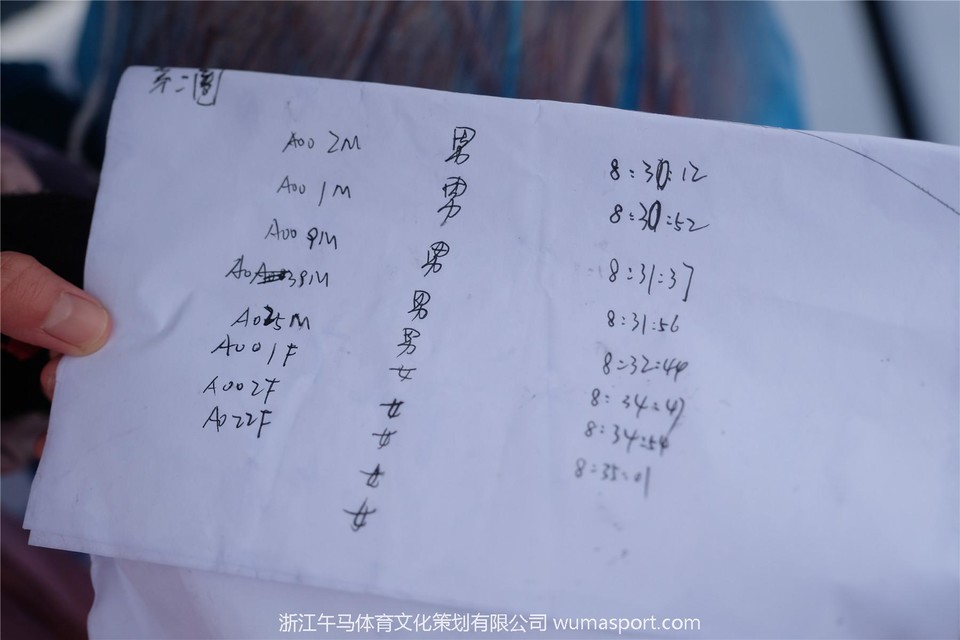 第二圈
A002M 男 8:30:12
A001M 男 8:30:52
A009M 男 8:31:37
男 8:31:56
A025M 男 8:32:44
A001F 女 8:34:47
A002F 女 8:34:54
A022F 女 8:35:01
女
女
浙江午马体育文化策划有限公司 wumasport.com